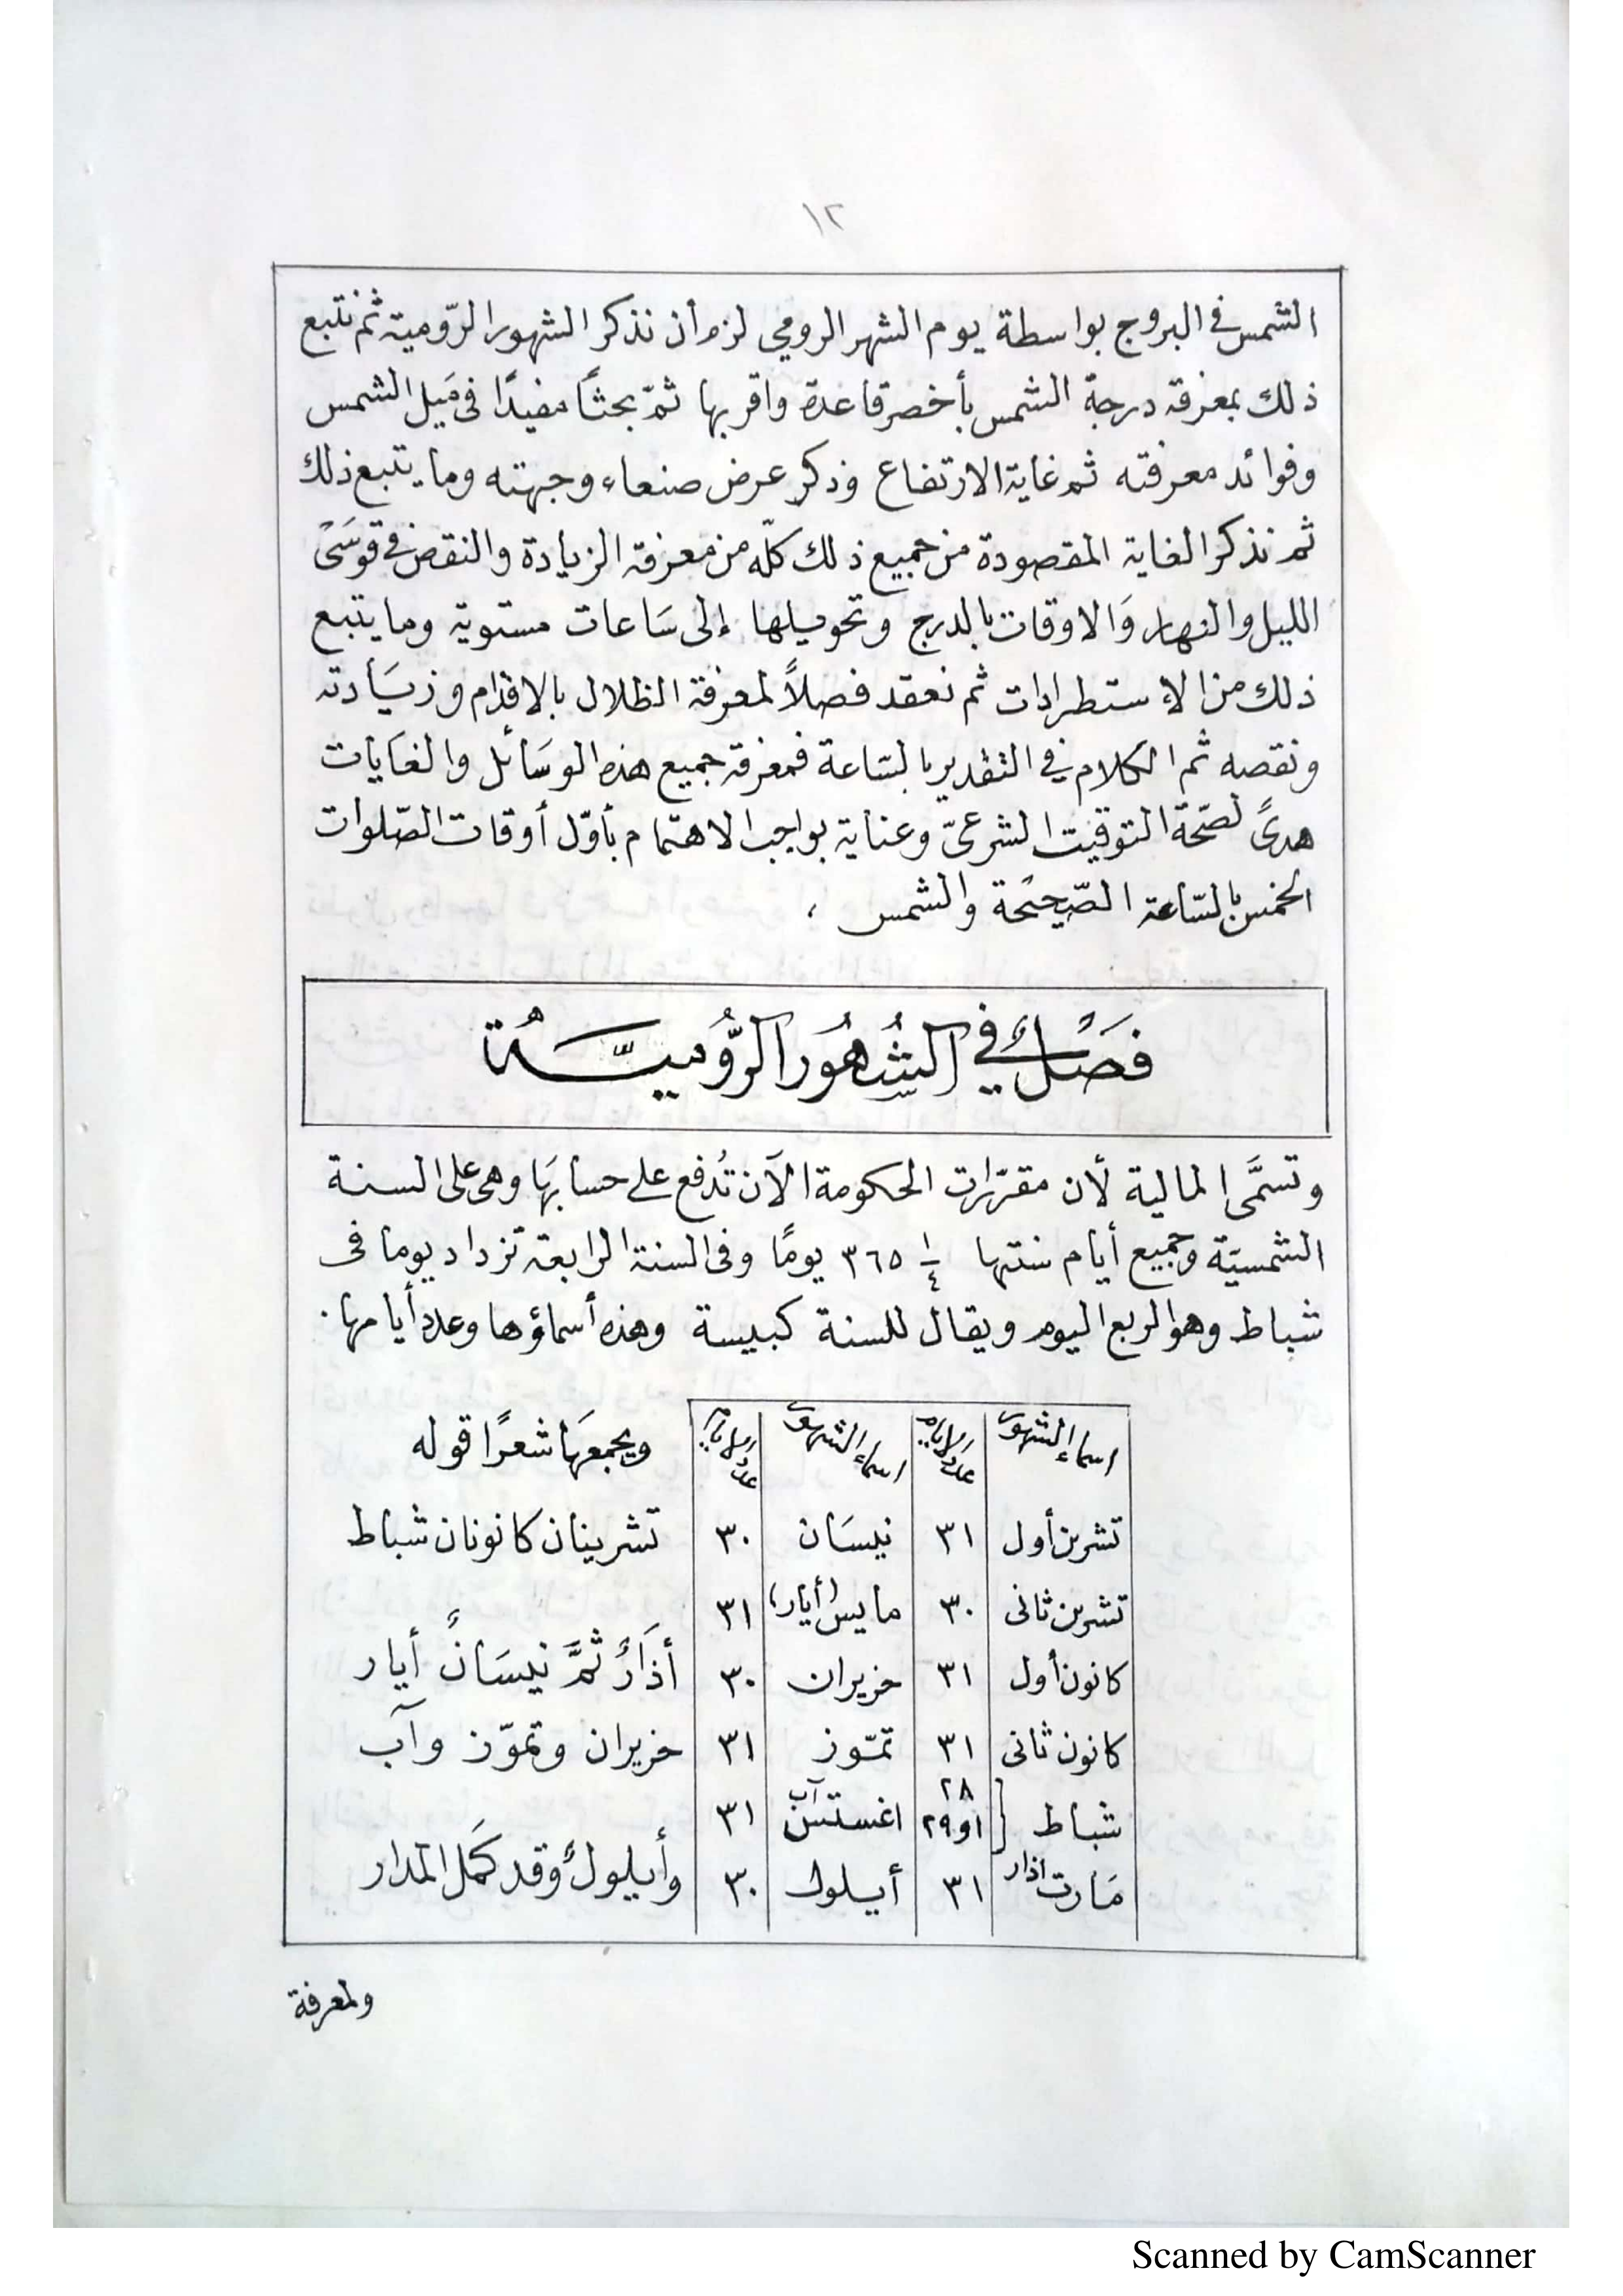 ١٢
الشمس في البروج بواسطة يوم الشهر الرومي لزم أن نذكر الشهور الرّومية ثم نتبع
ذلك بمعرفة درجة الشمس بأخصر قاعدة واقربها ثمّ بحثًا مفيدًا فى مَيل الشمس
وفوائد معرفته ثم غاية الارتفاع وذكر عرض صنعاء وجهته وما يتبع ذلك
ثم نذكر الغاية المقصودة من جميع ذلك كلّه من معرفة الزيادة والنقص في قوسَىْ
الليل والنهار وَالاوقات بالدرج وتحويلها إلى سَاعات مستوية وما يتبع
ذلك من الاستطرادات ثم نعقد فصلاً لمعرفة الظلال بالاقدام وزيَادته
ونقصه ثم الكلام في التقدير بالسّاعة فمعرفة جميع هذه الوسَائل والغايات
هدىً لصحّة التوقيت الشرعىّ وعناية بواجب الاهتمام بأوّل أوقات الصّلوات
الخمس بالسّاعة الصّحيحَة والشمس ،
فَصْلٌ في الشُهُور الرُّوميَّـةُ
وتسمَّى المالية لأن مقرّرات الحكومة الآن تُدفع على حسابهَا وهى على السنة
الشمسيّة وجميع أيام سنتها ٣٦٥ ١/٤ يومًا وفى السنة الرابعة تزداد يوما فى
شباط وهو الربع اليوم ويقال للسنة كبيسة وهذه أسماؤها وعدد أيامها .
اسماء الشهور عدد الايام اسماء الشهور عدد الايام ويجمعهَا شعرًا قوله
تشرين أول ٣١ نيسَان ٣٠ تشرينان كانونان شباط
تشرين ثانى ٣٠ مايس (أيار) ٣١
كانون أول ٣١ حزيران ٣٠ أذَارٌ ثمَّ نيسَانٌ أيار
كانون ثانى ٣١ تمّوز ٣١ حزيران وتموّز وآب
شباط ٢٨ او ٢٩ اغستس آب ٣١
مَارت اذار ٣١ أيلول ٣٠ وأيلولٌ وقد كَمل المدار
ولمعرفة
Scanned by CamScanner